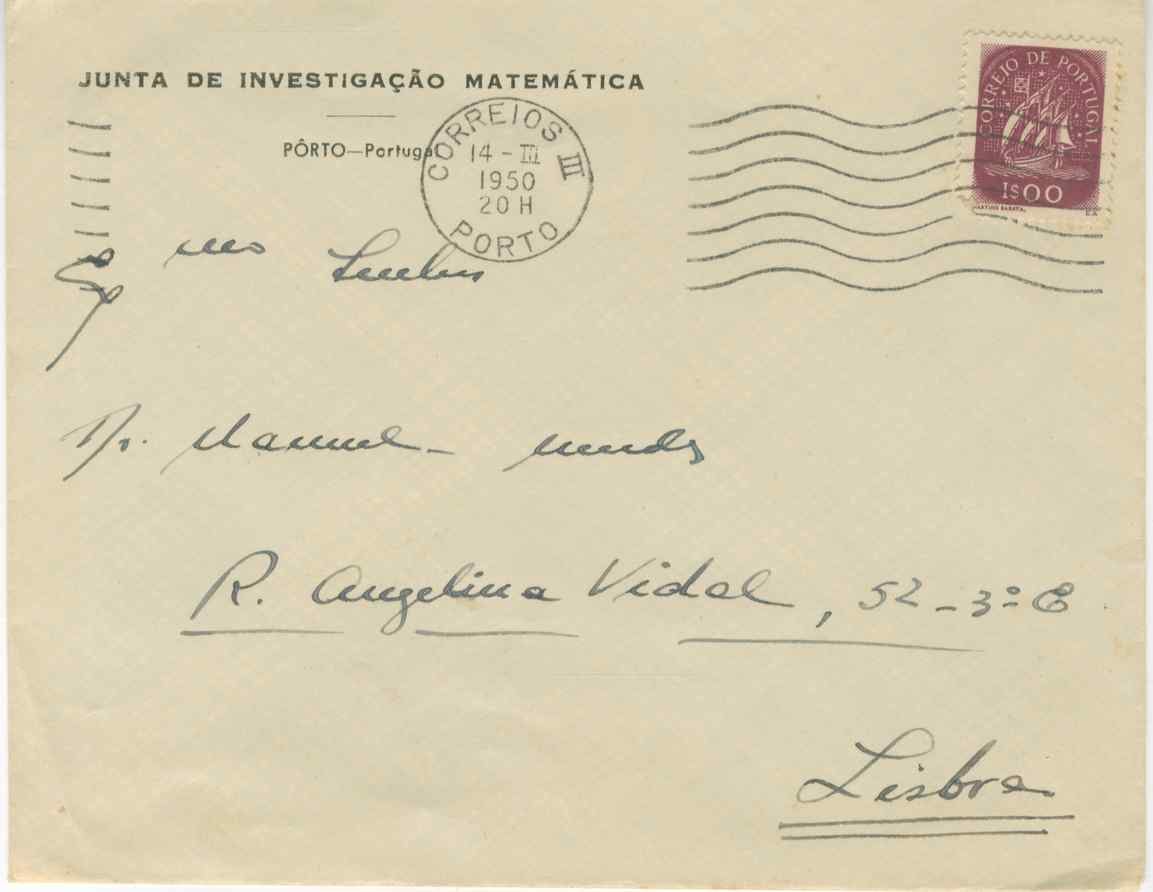 JUNTA DE INVESTIGAÇÃO MATEMÁTICA
PÔRTO—Portugal
CORREIOS III
14 - III
1950
20 H
PORTO
CORREIO DE PORTUGAL
1$00
MARTINS BARATA
Exmo Senhor
Dr. Manuel Mendes
R. Angelina Vidal, 52-3º E
Lisboa